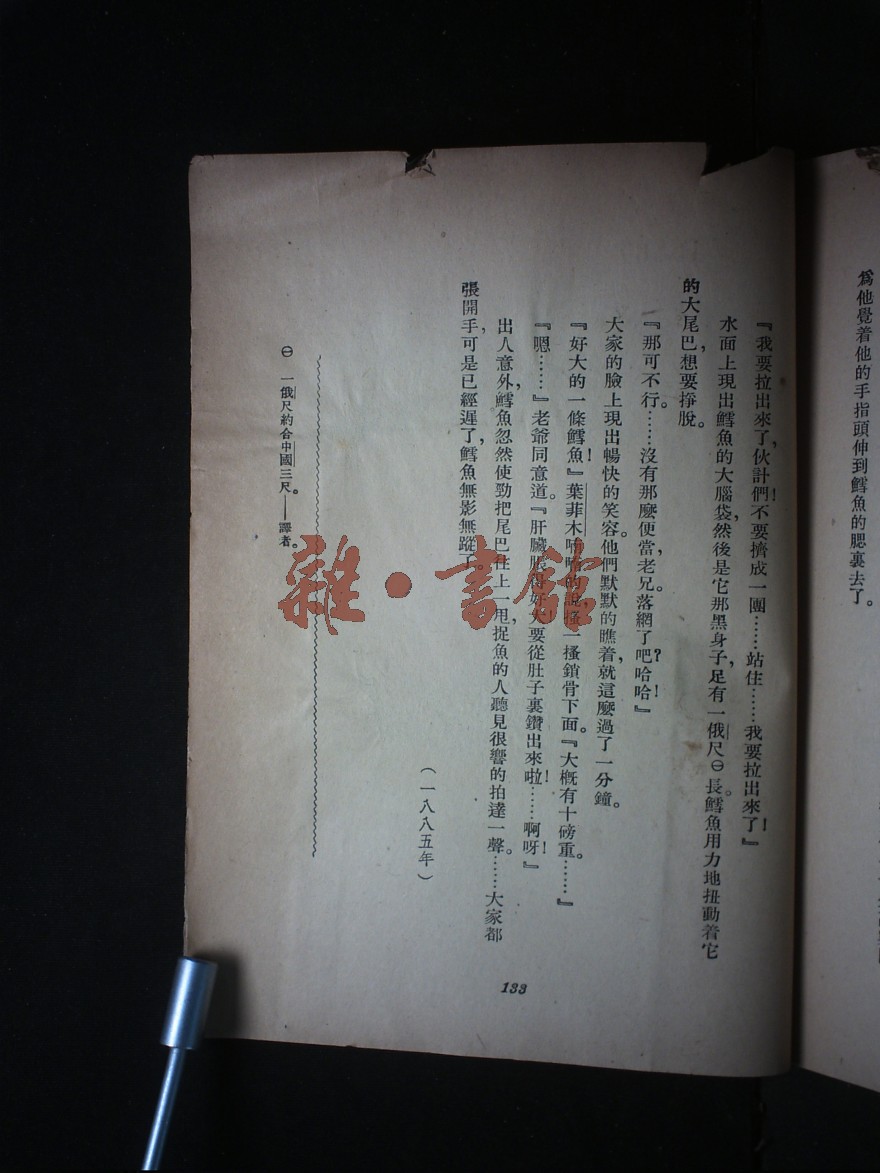 爲他覺着他的手指頭伸到鱈魚的腮裏去了。
『我要拉出來了，伙計們！不要擠成一團……站住……我要拉出來了！』
水面上現出鱈魚的大腦袋，然後是它那黑身子，足有一俄尺㊀長。鱈魚用力地扭動着它
的大尾巴，想要掙脫。
『那可不行。……沒有那麼便當，老兄。落網了吧？哈哈！』
大家的臉上現出暢快的笑容。他們默默的瞧着，就這麼過了一分鐘。
『好大的一條鱈魚！』葉菲木喃喃的說，搔一搔鎖骨下面。『大概有十磅重。……』
『嗯……』老爺同意道。『肝臟脹得好大！要從肚子裏鑽出來啦！……啊呀！』
出人意外，鱈魚忽然使勁把尾巴往上一甩，捉魚的人聽見很響的拍達一聲。……大家都
張開手，可是已經遲了，鱈魚無影無蹤了。
（一八八五年）
㊀ 一俄尺約合中國三尺。——譯者。
133
雜·書館